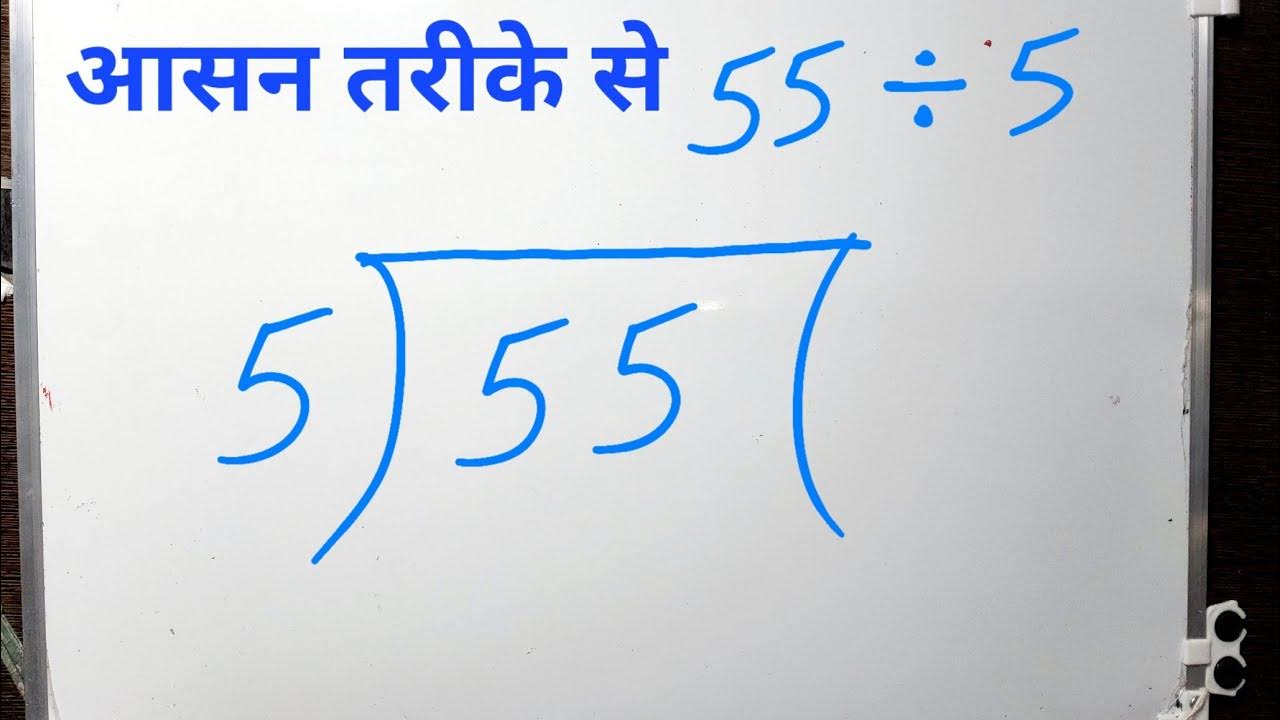 आसन तरीके से 55 ÷ 5
5) 55 (